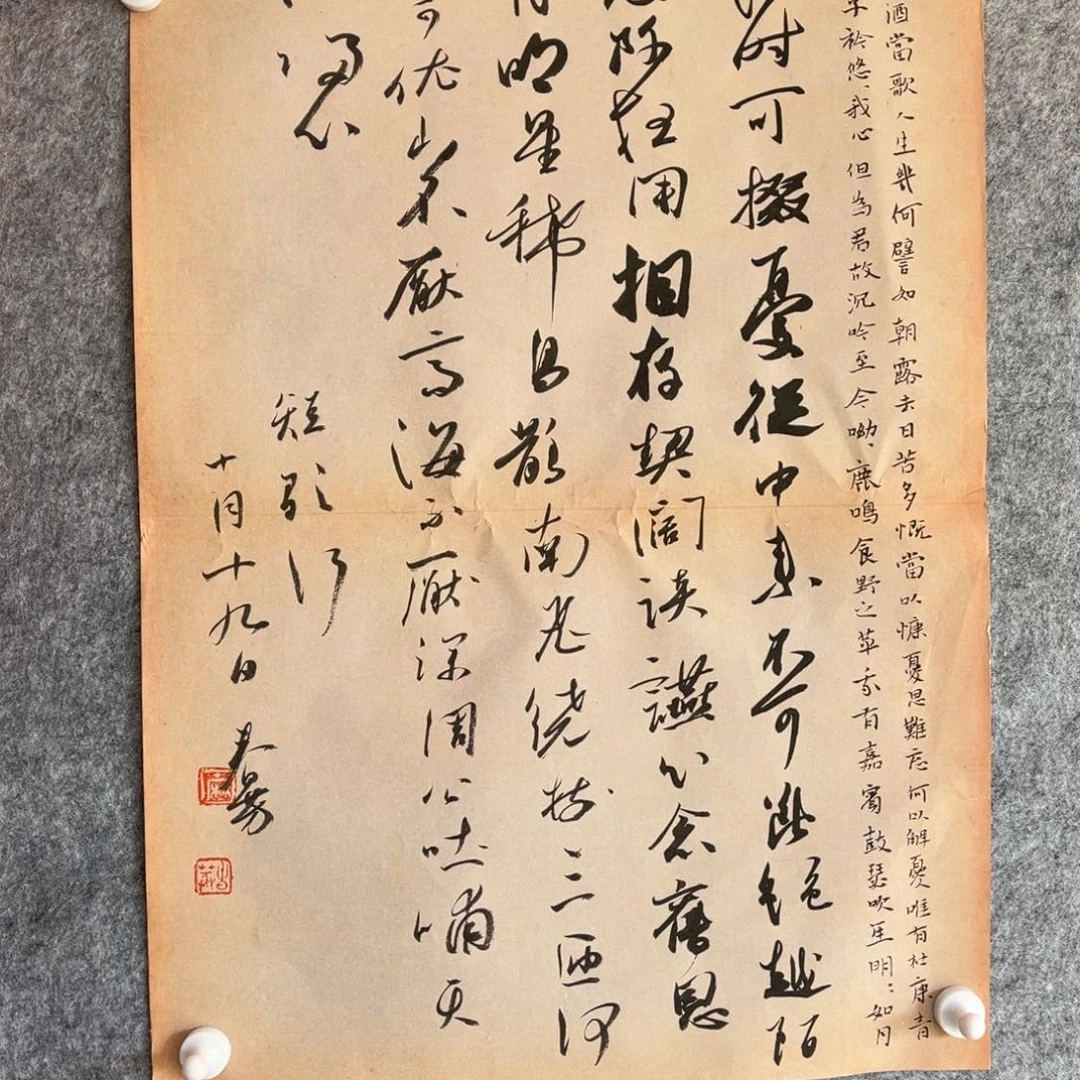 酒當歌人生幾何譬如朝露去日苦多慨當以慷憂思難忘何以解憂唯有杜康青
衿悠、我心但為君故沉吟至今呦、鹿鳴食野之苹我有嘉賓鼓瑟吹笙明、如月
时可掇憂從中来不可断绝越陌
阡枉用相存契阔谈讌心念舊恩
明星稀烏鵲南飛繞樹三匝何
可依山不厭高海不厭深周公吐哺天
歸心
短歌行
十月十九日